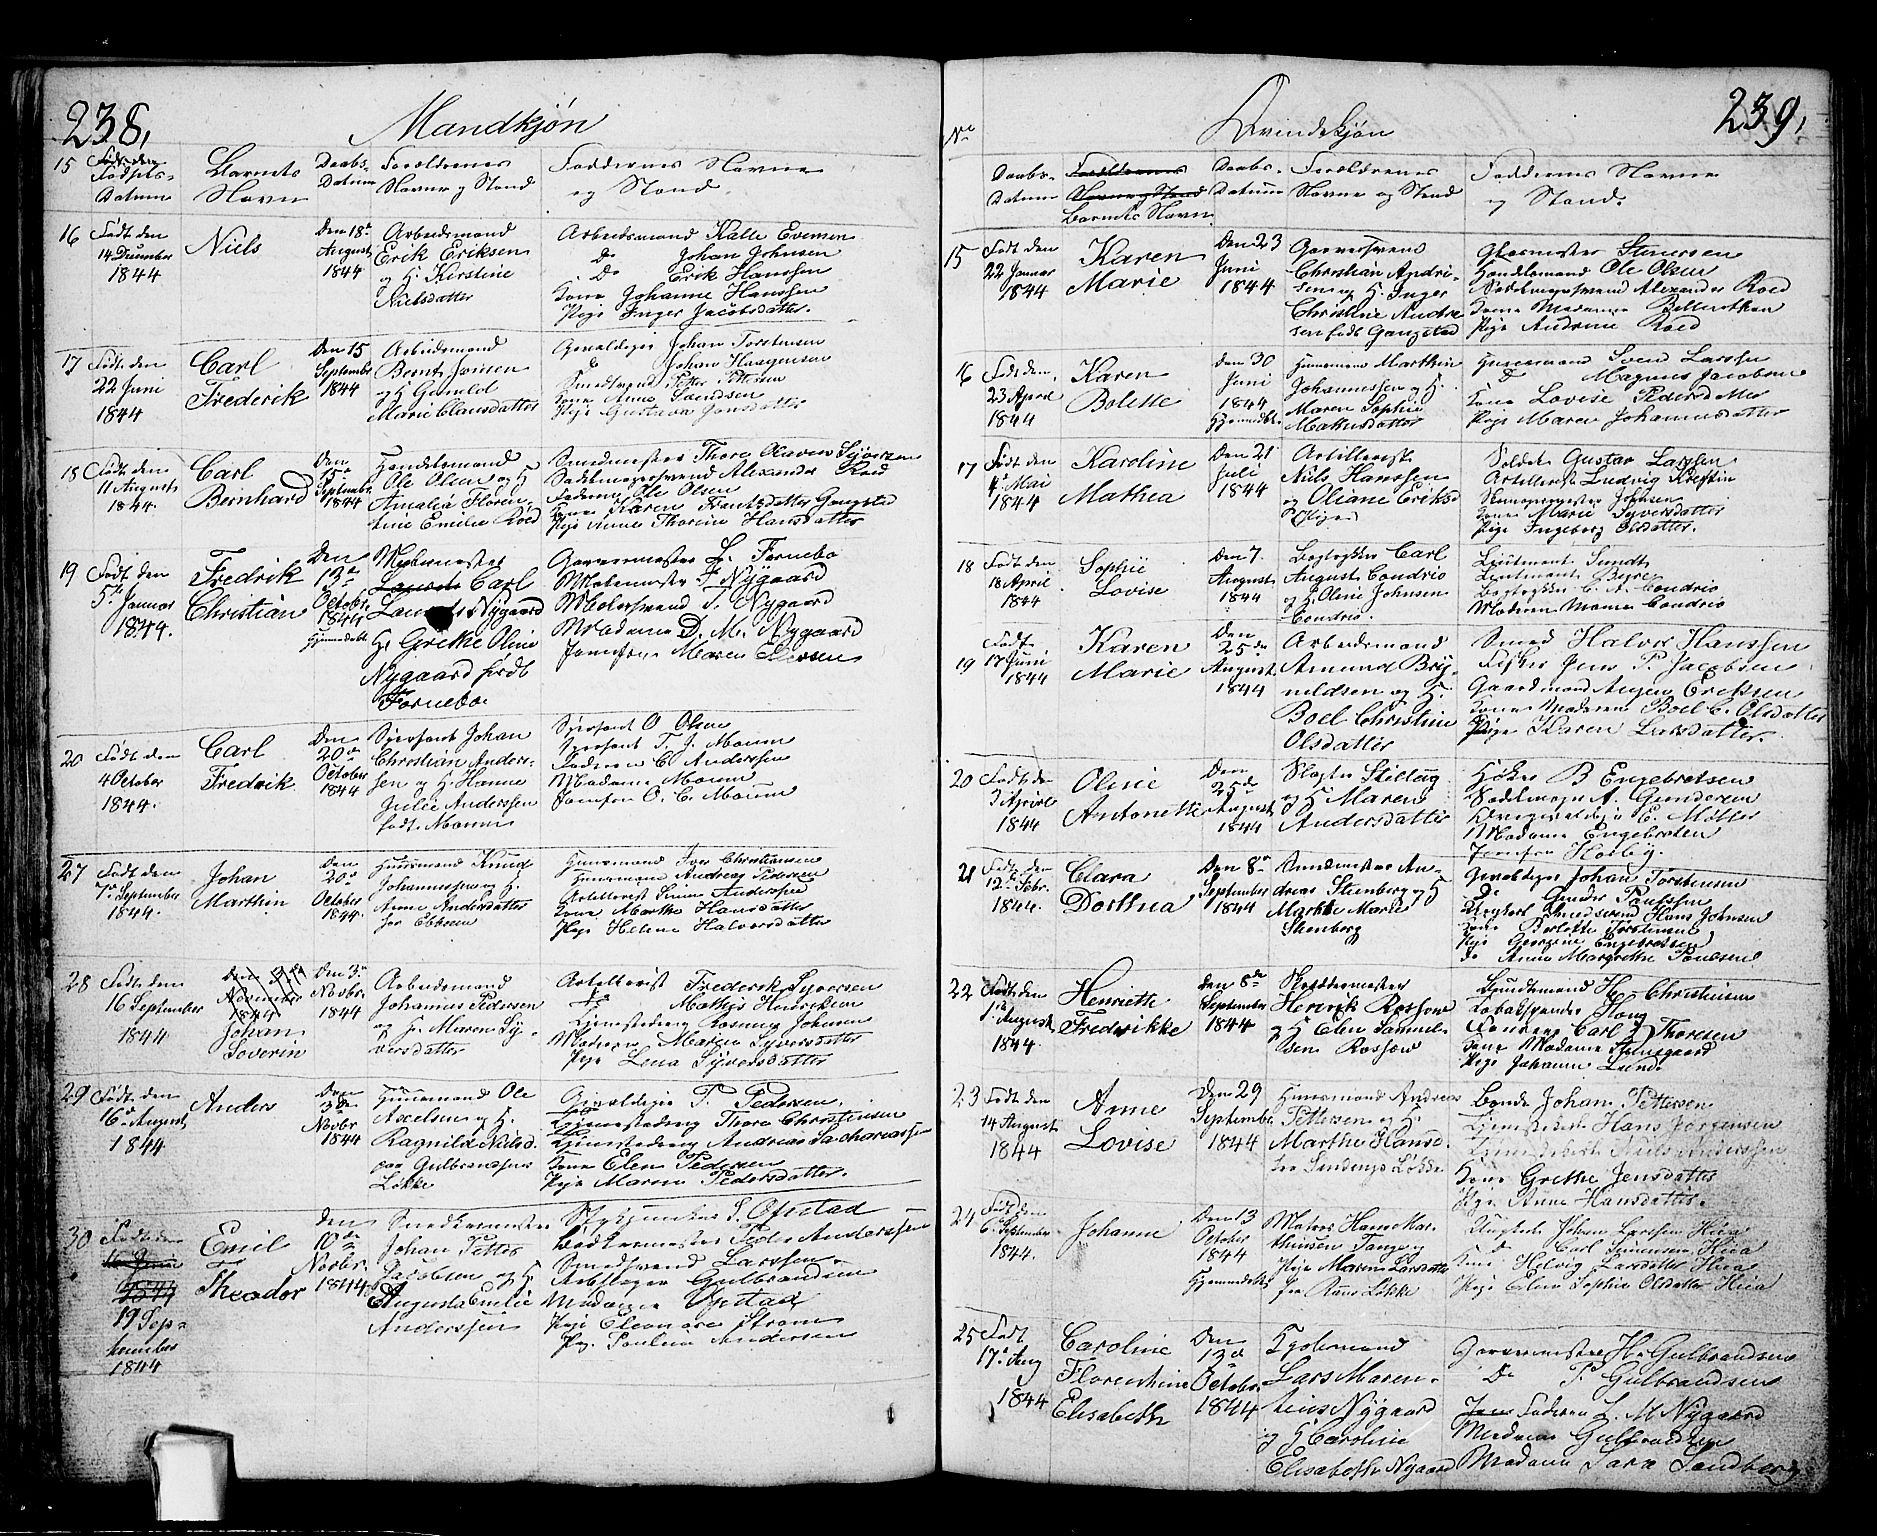 238,
Mandkjøn
15 Født den
Fødsels-
Datum
Barnets
Navn
Daabs-
Datum
Forældrenes
Navne og Stand
Faddernes Navne
og Stand.
16 Født den
14 December
1844
Niels
Den 18de
August
1844
Arbeidsmand
Erik Eriksen
og H. Kirstine
Nielsdatter
Arbeidsmand Kalle Evensen
Do Johan Johnsen
Do Erik Hanssen
Kone Johanne Hanssen
Pige Inger Jacobsdatter.
17 Født den
22 Juni
1844
Carl
Frederik
Den 15
September
1844
Arbeidsmand
Bernt Jonsen
og H Gunild
Marie Clausdatter
Gevaldiger Johan Torstensen
d Johan Haagensen
Smedsvend Petter Pettersen
Kone Anne Svendsen
Pige Gustava Jonsdatter
18 Født den
11 August
1844.
Carl
Bernhard
Den
15de
Septembr
1844
Handelsmand
Ole Olsen og H
Amalia Floren-
tine Emilie Roed
Smedmester Thore Olaven Syversen
Sadelmagersvend Alexander Roed
Faderen Ole Olsen
Kone Karen Frantsdatter Gangstad
Pige Anne Thorine Hansdatter
19 Født den
5te Januar
1844.
Fredrik
Christian
Den
13de
Octobr.
1844
Hjemmedøbt
Carl
Laurits Nygaard
H. Grethe Oline
Nygaard født
Fornebo.
Garvermester L. Fornebo
Malermester F Nygaard
Malersvend T. Nygaard
Madame D. M. Nygaard
Jomfru Maren Iversen
20 Født den
4 October
1844.
Carl
Fredrik
Den
20de
October
1844
Sjersant Johan
Christian Anders-
sen og H. Hanne
Julie Anderssen
født Moum
Sjersant O Olsen
Sjersant T. J. Moum
Faderen C. Anderssen
Madame Moum
Jomfru O. C. Moum
27 Født den
7de September
1844.
Johan
Marthin
Den
20de
October
1844.
Huusmand Knud
Johannesen og H.
Anne Andersdatter
Huusmand Iver Christiansen
Huusmand Andreas Pedersen
Artellerist Simen Anderssen
Kone Marthe Hansdatter
Pige Helene Halvorsdatter
28 Født den
16 September
1844
Johan
Severin
Den 3de
Novbr.
1844
Arbeidsmand
Johannes Pedersen
og H. Maren Sy-
versdatter
Artellerist Frederik Syversen
Do Mathis Hendriksen
Tjenestedreng Rasmus Johnsen
Madamen Maren Syversdatter
Pige Lena Syversdatter
29 Født den
16de August
1844
Anders
Den
3de
Novbr
1844
Huusmand Ole
Axelsen og H.
Ragnild Nilsd.
paa Gulbransens
Løkke
Gevaldiger T. Pedersen
Tjenestedreng Thore Christensen
Tjenestedreng Andreas Zachariassen
Kone Elen Pedersen
Pige Maren Pedersdatter.
30 Født den
19 Sep-
tember
1844
Emil
Theodor
Den
10de
Novbr.
1844
Snedkermester
Johan Petter
Jacobsen og H.
Augusta Emilie
Anderssen
Stykjunker S. Opstad
Bødkermester Peder Anderssen
Smedsvend Larssen
Arbskger Gulbrandsen
Madame Opstad
Pige Eleonore Strøm
Pig. Pauline Andersen
239,
No
Qvindekjøn
Daabs-
Datum
Forældrenes
Navne og Stand
Barnets Navn
Daabs-
Datum
Forældrenes
Navne og Stand
Faddernes Navne
og Stand.
15 Født den
22 Januar
1844
Karen
Marie
Den 23
Juni
1844
Garversvend
Christian Andri-
sen og H. Inger
Christine Andre-
sen født Gangstad
Glasmester Stenersen
Handelsmand Ole Olsen
Sadelmagersvend Alexander Roed
Kone Madame
Pige Andrine Roed
16 Født den
23 April
1844
Karen
Bolette
Den 30
Juni
1844
Hjemmedøbt
Huusmand Marthin
Johannessen og H.
Maren Sophie
Mathisdatter
Huusmand Svend Larssen
D Magnus Jacobsen
Kone Lovise Pedersdatter
Pige Maren Johannesdatter
17 Født den
4de Mai
1844
Karoline
Mathea
Den 21
Juli
1844
Artillerist
Nils Hanssen
og Oliane Eriksd
Soldat Gustav Larssen
Artellerist Ludvig
Johnsen
Kone Marie Syversdatter
Pige Ingeborg Olsdatter.
18 Født den
18 April
1844
Sophie
Lovise
Den 7.
August
1844
Bogtrykker Carl
August Condrio
og H. Oline Johnsen
Condrio.
Lieutenant Sundt
Lieutenant Dyre
Bogtrykker C. A. Condrio
Madame Condrio
19
Født
17 Juni
1844
Karen
Marie
Den
25de
August
1844
Arbeidsmand
Amund Bry-
nildsen og H.
Boel Christine
Olsdatter
Smed Halvor Hanssen
Fisker Jens P. Jacobsen
Gaardmand Eriksen
Kone Madame Boel C. Olsdatter
Pige Karen Larsdatter.
20 Født den
3 April
1844
Oline
Antonette
Den
25de
August
1844
Slagter Stillug
og H Maren
Andersdatter
Høker B Engebretsen
Sadelmager A. Gundersen
E. Møller
Madame Engebretsen
Jomfru Høeby.
21 Født den
12te Febr.
1844.
Clara
Dorthea
Den 8de
September
1844
Smedmester An-
dreas Stenberg og H
Marthe Marie
Stenberg
Gevaldiger Johan Torstensen
Do Gunder Poulssen
Ungkarl Smedsvend Hans Johnsen
Kone Berthe Torstensen
Pige Georgine Engebretsen
do Anne Margrethe Poulsen
22 Født den
1te August
1844.
Henriette
Frederikke
Den 8de
September
1844
Skræddermester
Henrik Rossow
og H Elen Samuel-
sen Rossow
Bundtmand H. Christensen
Tobakspinder Houg
Carl J Thoresen
Kone Madame Stensgaard
Pige Johanne Lund.
23 Født den
14 August
1844
Anne
Lovise
Den 29
September
1844
Huusmand Andreas
Pettersen og H.
Marthe Hansd.
fra Lundengs Løkke
Bonde Johan Pettersen
Tjenestedreng Hans Jørgensen
Tjenestedreng Niels Anderssen
Kone Grethe Jensdatter
Pige Anne Hansdatter.
24 Født den
6te September
1844.
Johanne
Den 13
October
1844
Hjemmedøbt
Matros Hans Mar-
thinsen Tange og
Pige Maren Larsdatter
fra Løkke
Ungkarl Johan Larssen Huia
D Carl Simensen Huia
Kone Helvig Larsdatter Huia
Pige Elen Sophia Olsdatter Huia
25 Født
17de Aug
1844
Caroline
Florentine
Elisabeth
Den
13de
Octobr.
1844
Lars Maren-
tius Nygaard
og H Caroline
Elisabeth Nygaard
Garvermester H. Gulbrandsen
Do P. Gulbrandsen
Faderen L. M. Nygaard
Madame Gulbrandsen
Madame Sara Sandberg